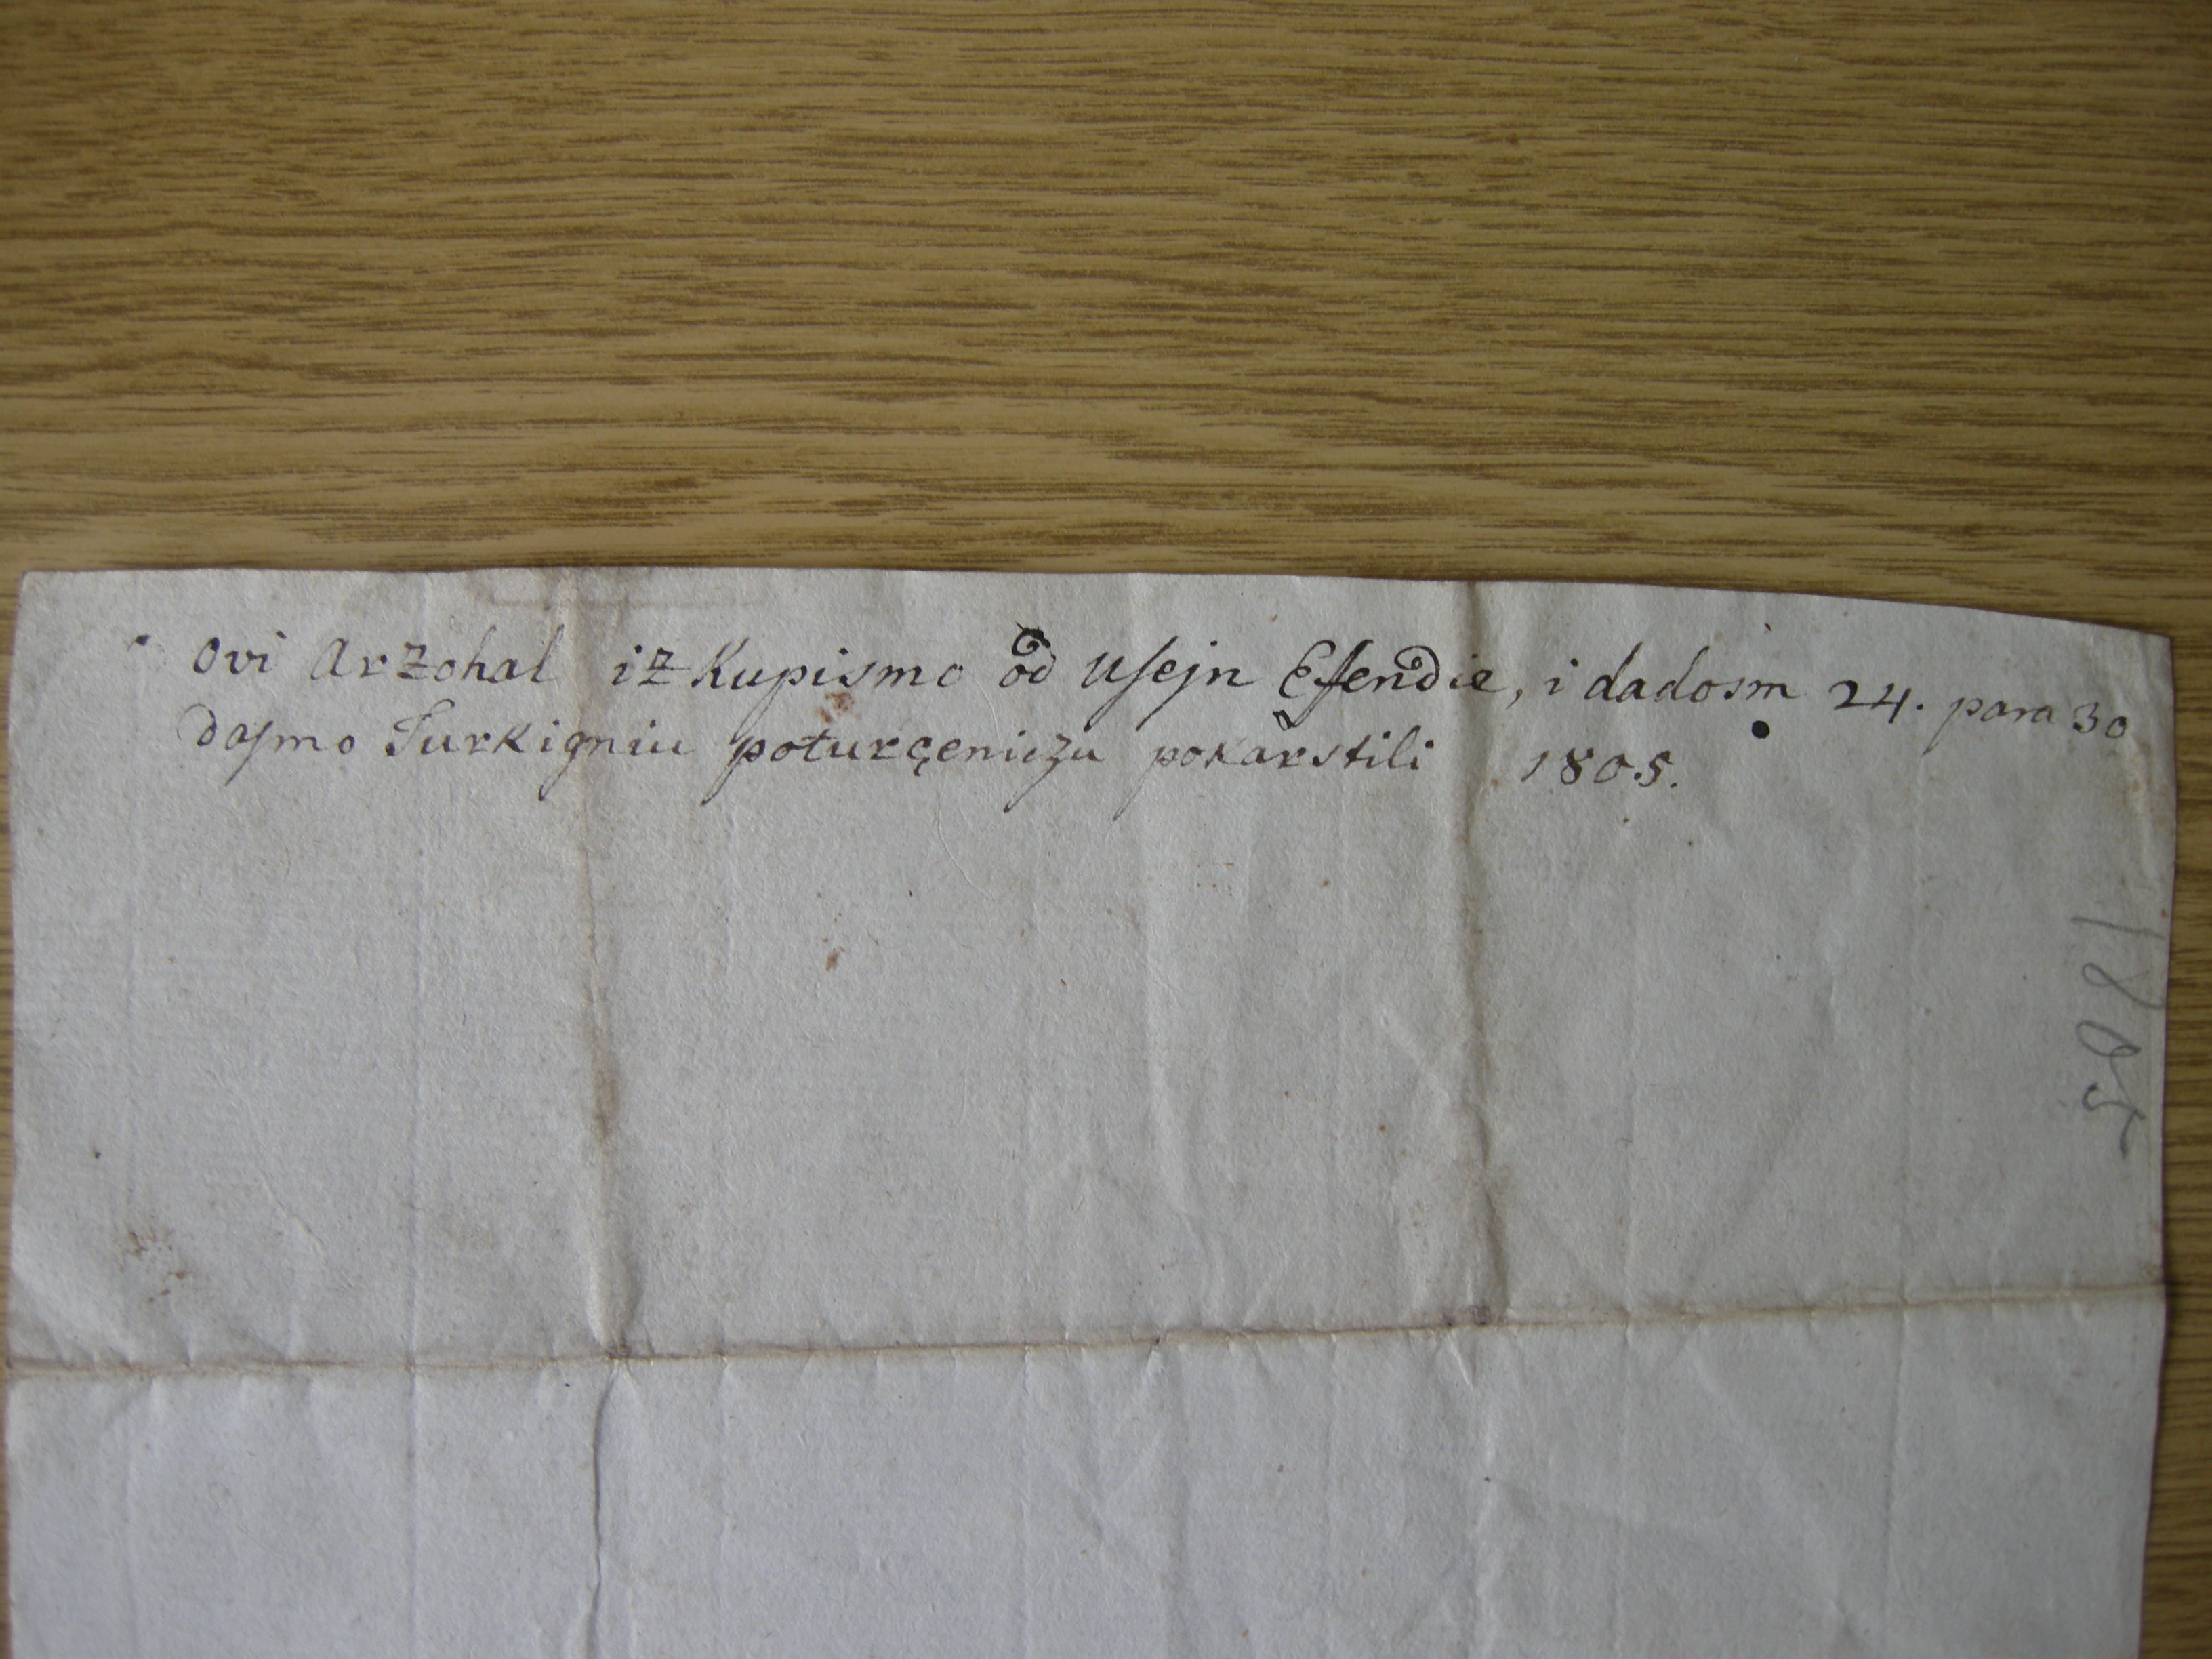 Ovi Arzohal izkupismo od Usejn Efendie, i dadosm 24. para 30
dasmo Turkigniu poturçeniczu pokarstili 1805.
1805